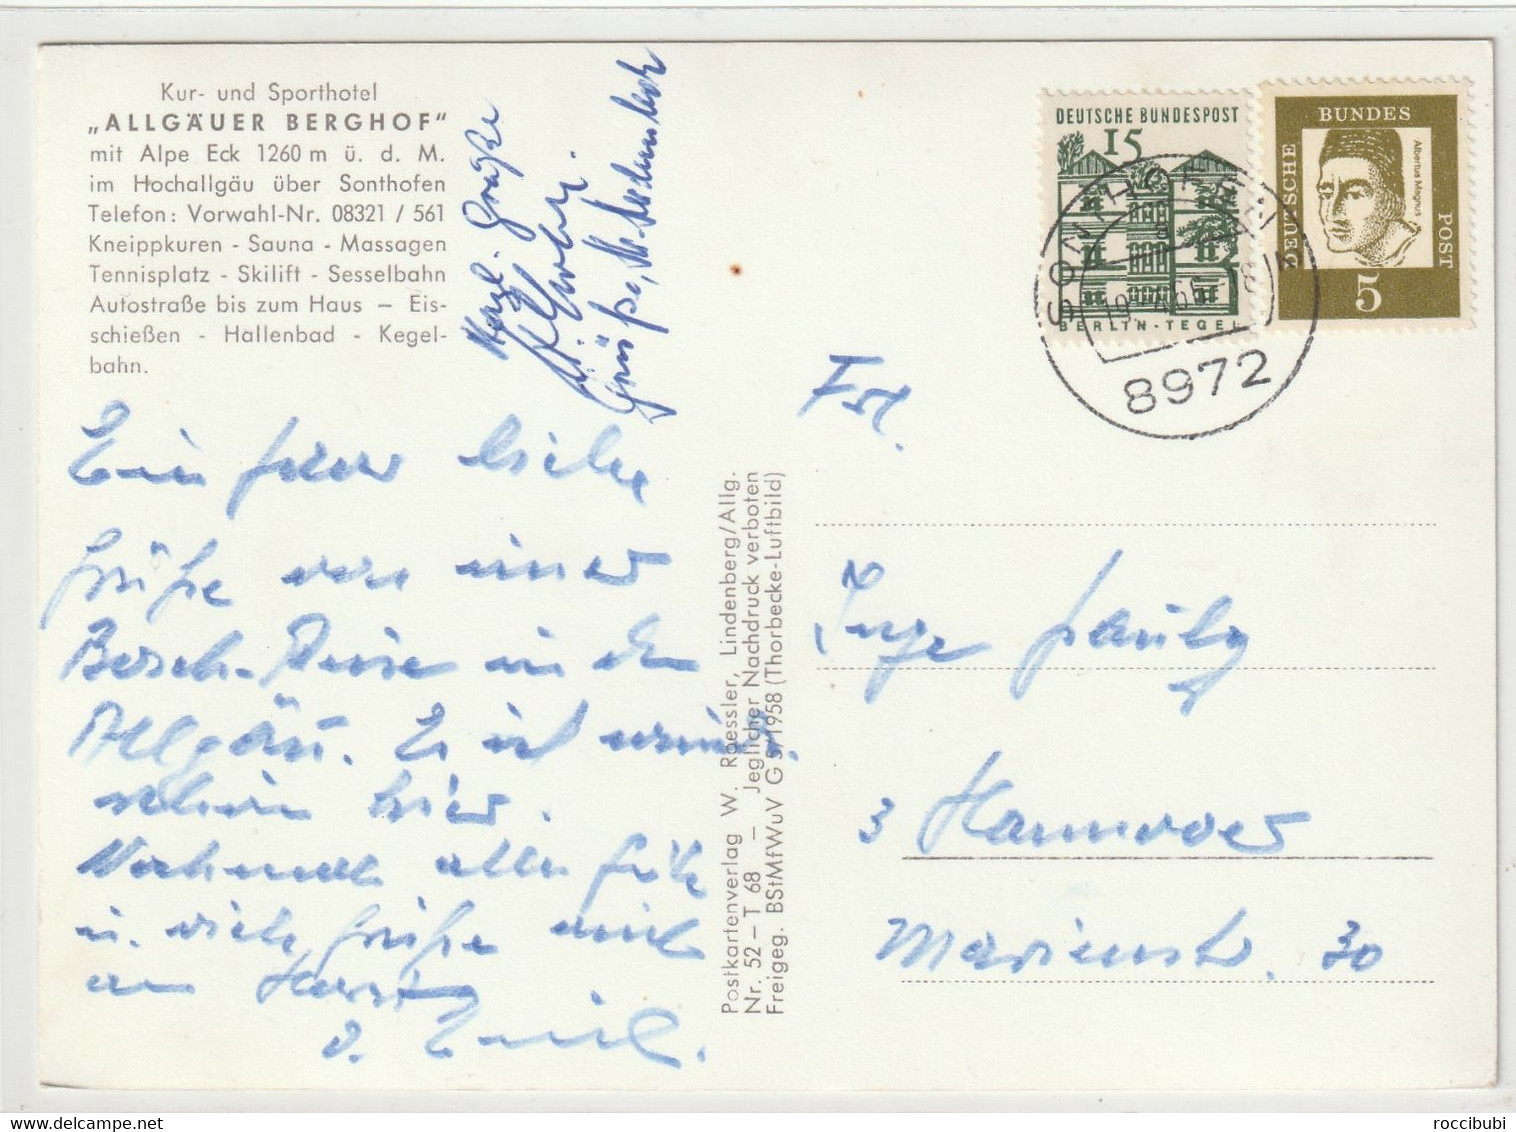 Kur- und Sporthotel
„ALLGÄUER BERGHOF"
mit Alpe Eck 1260 m ü. d. M.
im Hochallgäu über Sonthofen
Telefon: Vorwahl-Nr. 08321 / 561
Kneippkuren - Sauna - Massagen
Tennisplatz - Skilift - Sesselbahn
Autostraße bis zum Haus — Eis-
schießen - Hallenbad - Kegel-
bahn.
Herzl. Grüße
Grüße,
Ein paar liebe
Grüße von einer
Bosch-Reise in dem
Allgäu. Es ist
schön hier.
Nochmals alles Gute
u. viele Grüße auch
an Harry
d. Emil.
Postkartenverlag W. Roessler, Lindenberg/Allg.
Nr. 52 — T 68 — Jeglicher Nachdruck verboten
Freigeg. BStMfWuV G 5/1958 (Thorbecke-Luftbild)
DEUTSCHE BUNDESPOST
15
BERLIN-TEGEL
DEUTSCHE BUNDES POST
Albertus Magnus
5
SONTHOFEN
8972
Frl.
Inge Pauly
3 Hannover
Marienstr. 30
roccibubi